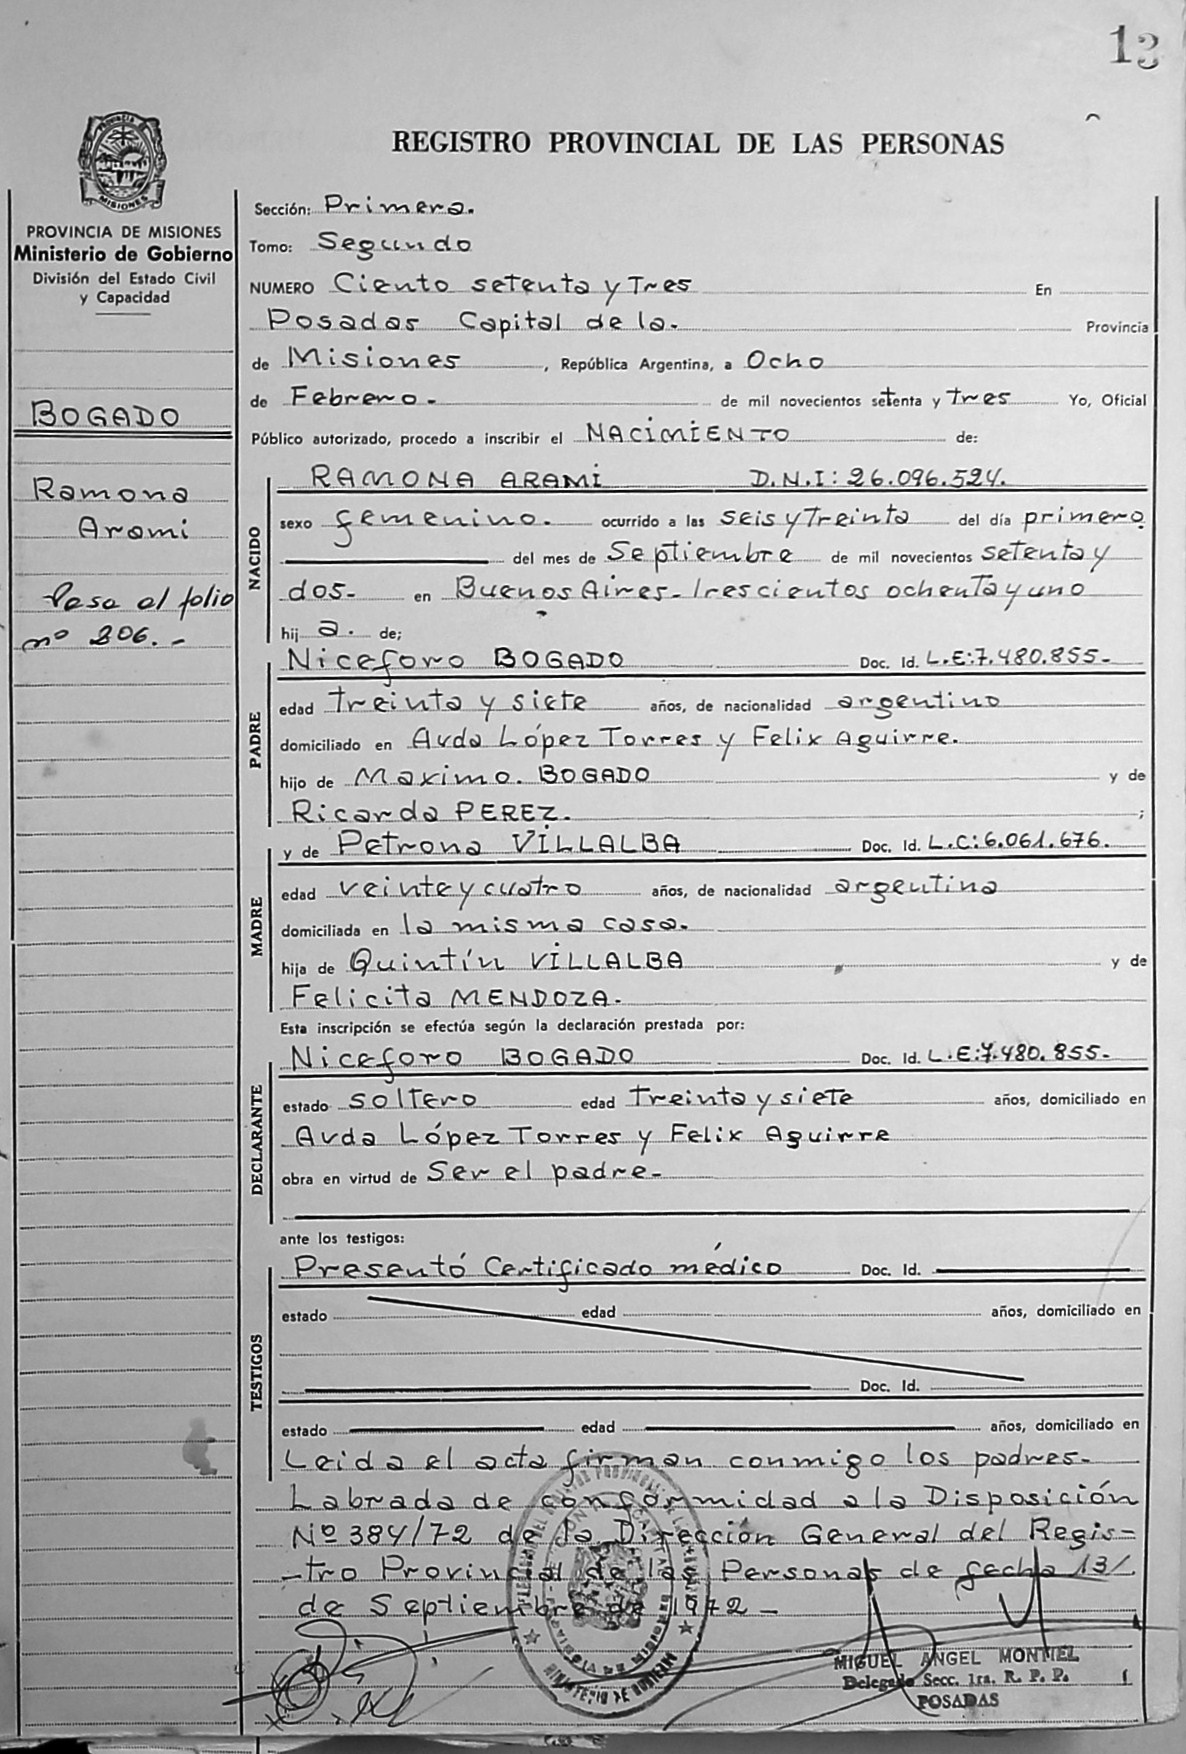 13
REGISTRO PROVINCIAL DE LAS PERSONAS
PROVINCIA DE MISIONES
Ministerio de Gobierno
División del Estado Civil
y Capacidad
BOGADO
Ramona
Arami
Pasa al folio
nº 206.-
Sección: Primera.
Tomo: Segundo
NUMERO Ciento setenta y Tres En
Posadas Capital de la. Provincia
de Misiones, República Argentina, a Ocho
de Febrero. de mil novecientos setenta y tres Yo, Oficial
Público autorizado, procedo a inscribir el NACIMIENTO de:
NACIDO
RAMONA ARAMI D.N.I: 26.096.524.
sexo femenino. ocurrido a las seis y Treinta del día primero
del mes de Septiembre de mil novecientos setenta y
dos- en Buenos Aires-Trescientos ochenta y uno
hij a. de;
PADRE
Niceforo BOGADO Doc. Id. L.E:7.480.855-
edad Treinta y siete años, de nacionalidad argentino
domiciliado en Avda López Torres y Felix Aguirre.
hijo de Maximo. BOGADO y de
Ricarda PEREZ. ;
MADRE
y de Petrona VILLALBA Doc. Id. L.C:6.061.676.
edad veinte y cuatro años, de nacionalidad argentina
domiciliada en la misma casa.
hija de Quintín VILLALBA y de
Felicita MENDOZA.
Esta inscripción se efectúa según la declaración prestada por:
DECLARANTE
Niceforo BOGADO Doc. Id. L.E:7.480.855-
estado soltero edad Treinta y siete años, domiciliado en
Avda López Torres y Felix Aguirre
obra en virtud de Ser el padre-
ante los testigos:
TESTIGOS
Presentó Certificado médico Doc. Id.
estado edad años, domiciliado en
Doc. Id.
estado edad años, domiciliado en
Leida el acta firman conmigo los padres.
Labrada de conformidad a la Disposición
Nº 384/72 de la Dirección General del Regis-
-tro Provincial de las Personas de fecha 13/
de Septiembre de 1972-
MIGUEL ANGEL MONTIEL
Delegado Secc. 1ra. R. P. P.
POSADAS